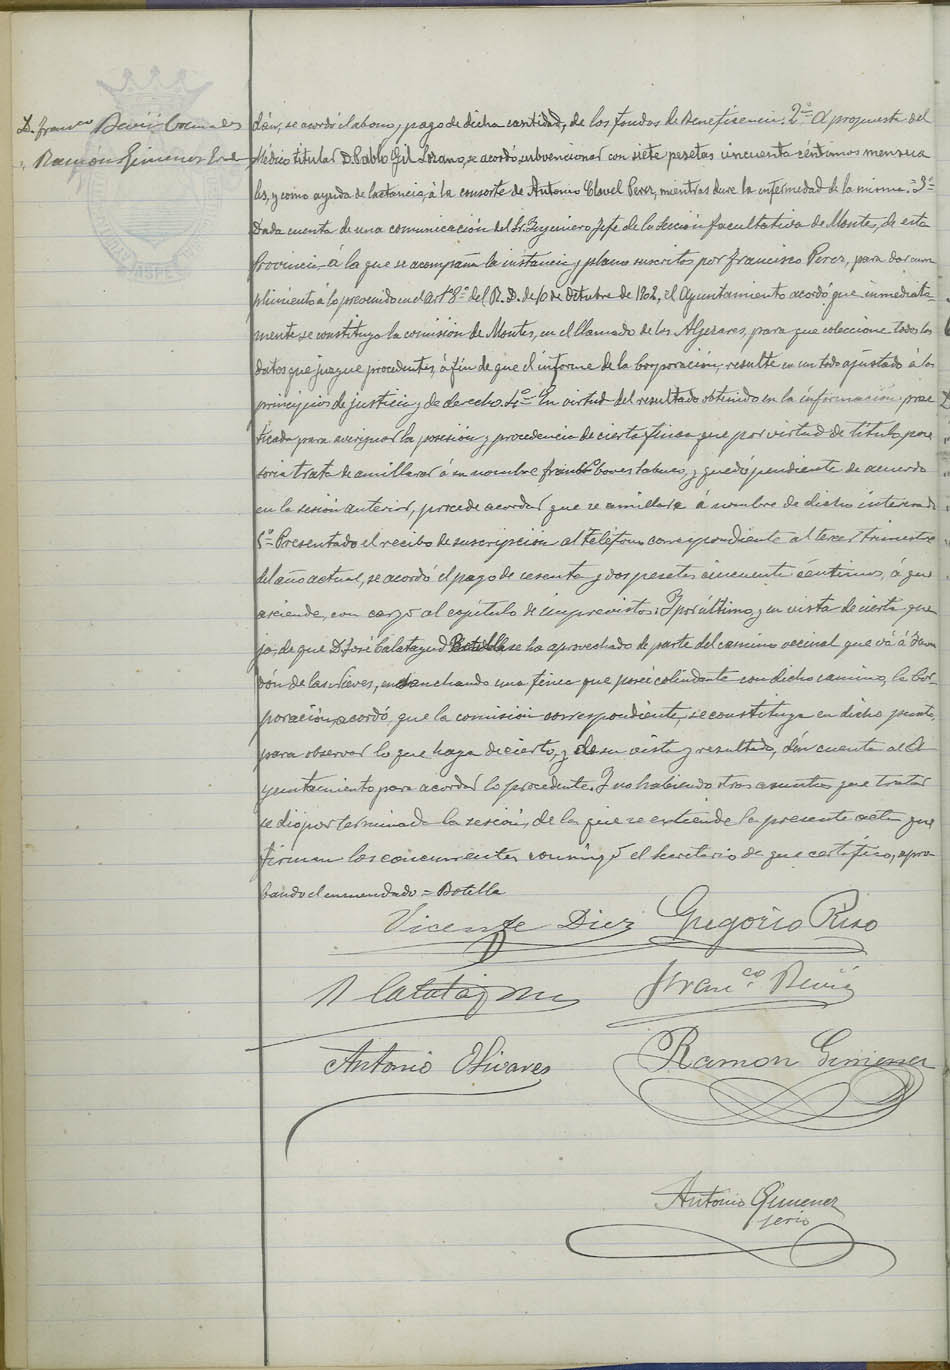 D. Franco Beviá Cremades
" Ramón Gimenez
dón, se acordó el abono y pago de dicha cantidad, de los fondos de Beneficencia. 2º A propuesta del
Médico titular D. Pablo Gil Lozano, se acordó, subvencionar con siete pesetas cincuenta céntimos mensua
les, y como ayuda de lactancia, á la consorte de Antonio Clavel Perez, mientras dure la enfermedad de la misma. = 3º
Dada cuenta de una comunicación del Sr. Ingeniero Jefe de la Sección facultativa de Montes, de esta
Provincia á la que se acompaña la instancia y plano suscritos por Francisco Perez, para dar cum
plimiento á lo prevenido en el artº 8º del R. D. de 10 de Octubre de 1902, el Ayuntamiento acordó que inmediata
mente se constituya la comisión de Montes, en el llamado de los Algezares, para que coleccione todos los
datos que juzgue procedentes, á fin de que el informe de la Corporación, resulte en un todo ajustado á los
principios de justicia y de derecho. 4º En virtud del resultado obtenido en la información prac
ticada para averiguar la posesión y procedencia de cierta finca que por virtud de título pose
sorio trata de amillarar á su nombre y quedó pendiente de acuerdo
en la sesión anterior, procede acordar que se amillare á nombre de dicho interesado
5º Presentado el recibo de suscripción al teléfono correspondiente al tercer trimestre
del año actual, se acordó el pago de sesenta y dos pesetas cincuenta céntimos, á que
asciende, con cargo al capítulo de imprevistos. Y por último, y en vista de cierta que
ja, de que D. José Calatayud Botella se ha aprovechado de parte del camino vecinal que vá á
de las Nieves, ensanchando una finca que posee colindante con dicho camino, la Cor-
poración, acordó, que la comisión correspondiente, se constituya en dicho punto,
para observar lo que haya de cierto, y de su vista y resultado, dén cuenta al A
yuntamiento para acordar lo procedente. Y no habiendo otros asuntos que tratar
se dió por terminada la sesión, de la que se extiende la presente acta que
firman los concurrentes conmigo el Secretario de que certifico, apro
bando el enmendado = Botella
Vicente Diez Gregorio Rizo
R Calatayud Francº Beviá
Antonio Olivares Ramon Gimenez
Antonio Gimenez
serio